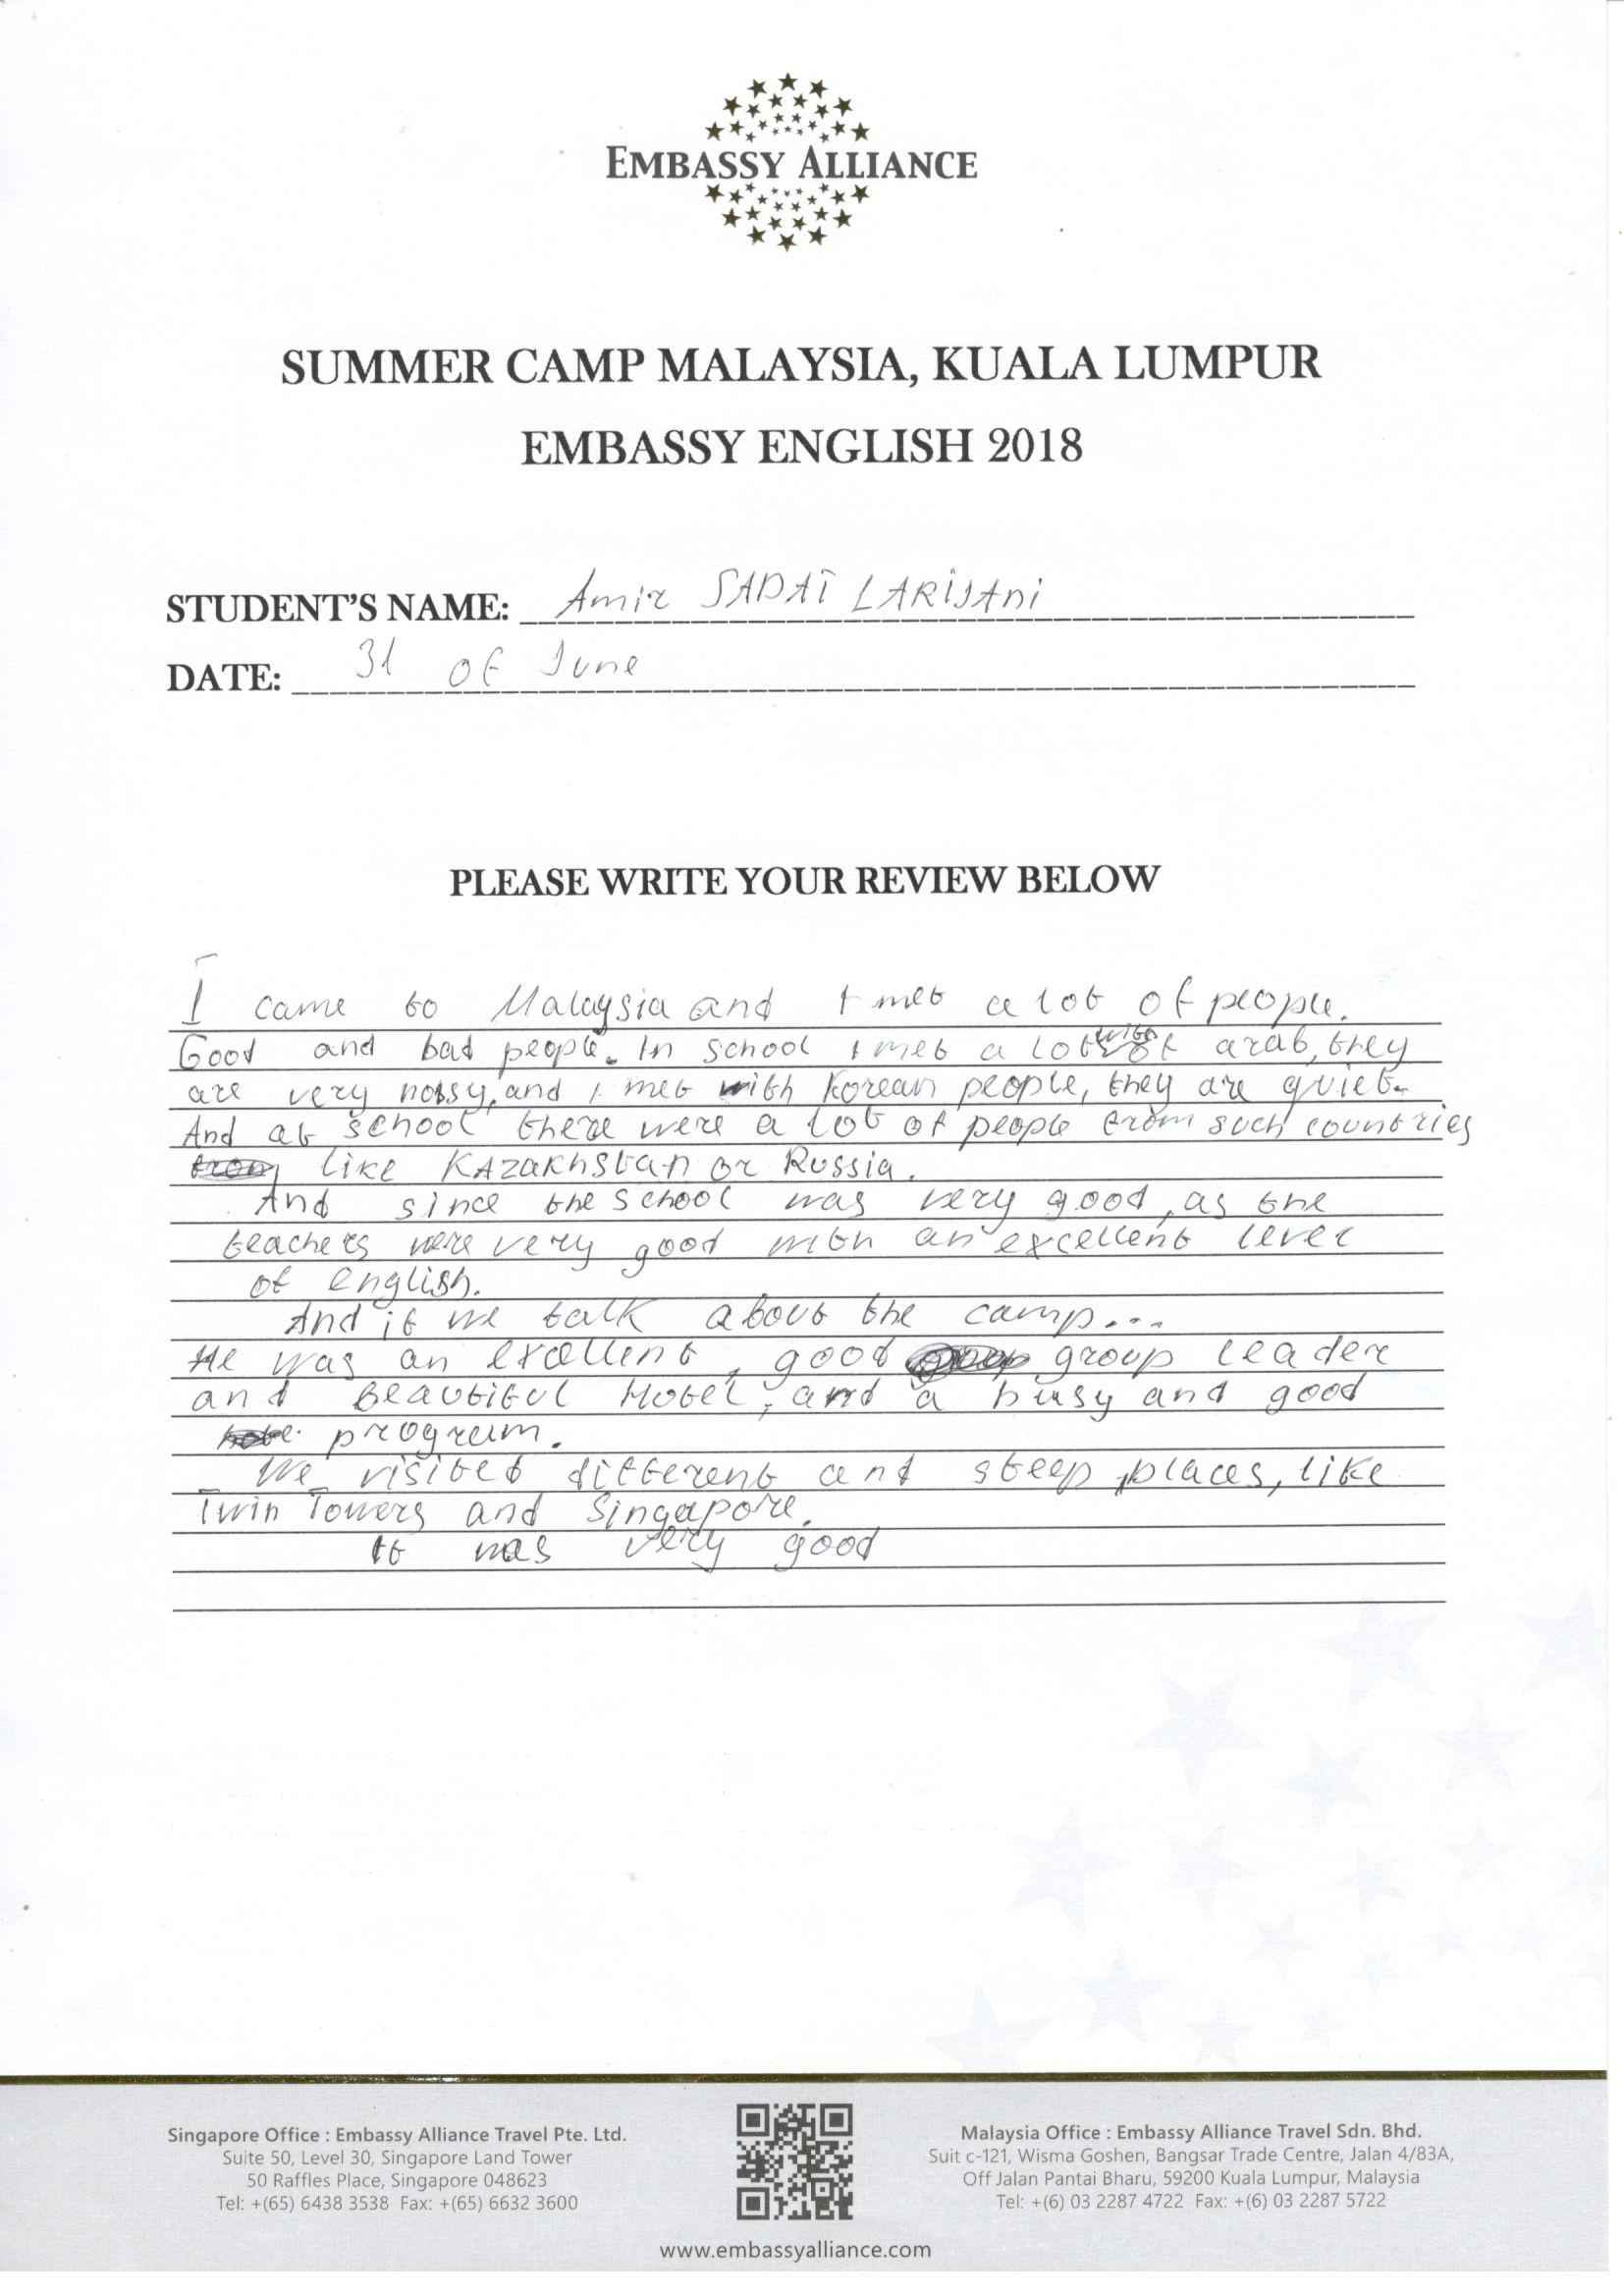 EMBASSY ALLIANCE
SUMMER CAMP MALAYSIA, KUALA LUMPUR
EMBASSY ENGLISH 2018
STUDENT'S NAME: Amir SADAT LARIJAni
DATE: 31 of June
PLEASE WRITE YOUR REVIEW BELOW
I came to Malaysia and I met a lot of people.
Good and bad people. In school I met a lot with arab, they
are very noisy, and I met with Korean people, they are quiet.
And at school there were a lot of people from such countries
like KAzakhstan or Russia.
And since the school was very good, as the
teachers were very good with an excellent level
of english.
And if we talk about the camp...
He was an exellent, good group leader
and Beautiful Hotel, and a busy and good
program.
We visited different and steep places, like
Twin Towers and Singapore.
It was very good
Singapore Office : Embassy Alliance Travel Pte. Ltd.
Suite 50, Level 30, Singapore Land Tower
50 Raffles Place, Singapore 048623
Tel: +(65) 6438 3538 Fax: +(65) 6632 3600
Malaysia Office : Embassy Alliance Travel Sdn. Bhd.
Suit c-121, Wisma Goshen, Bangsar Trade Centre, Jalan 4/83A,
Off Jalan Pantai Bharu, 59200 Kuala Lumpur, Malaysia
Tel: +(6) 03 2287 4722 Fax: +(6) 03 2287 5722
www.embassyalliance.com